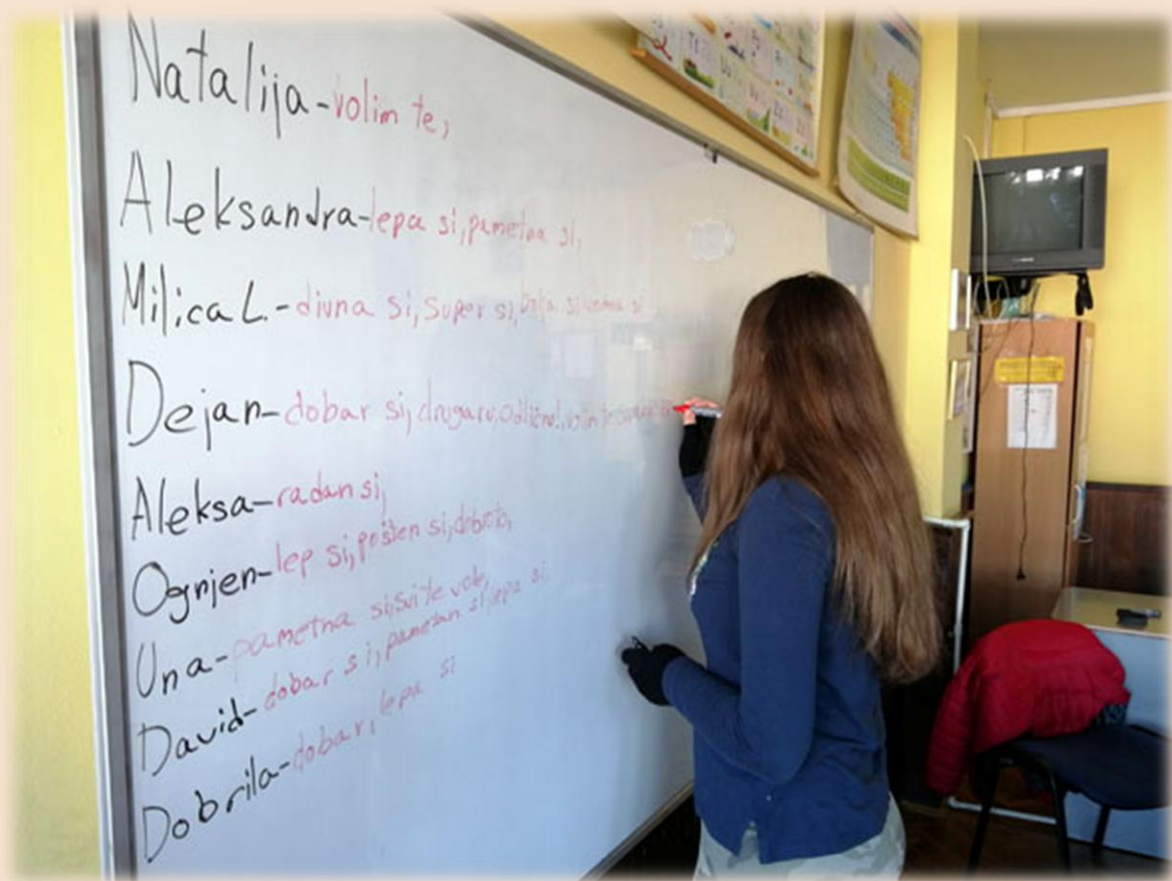 Natalija-volim te,
Aleksandra-lepa si, pametna si,
Milica L.-divna si, super si,
Dejan-dobar si, drugaru, odlično!, volim te
Aleksa-radan si,
Ognjen-lep si, pošten si, dobrota,
Una-pametna si, svi te vole,
David-dobar si, pametan si, lepa si,
Dobrila-dobar, lepa si